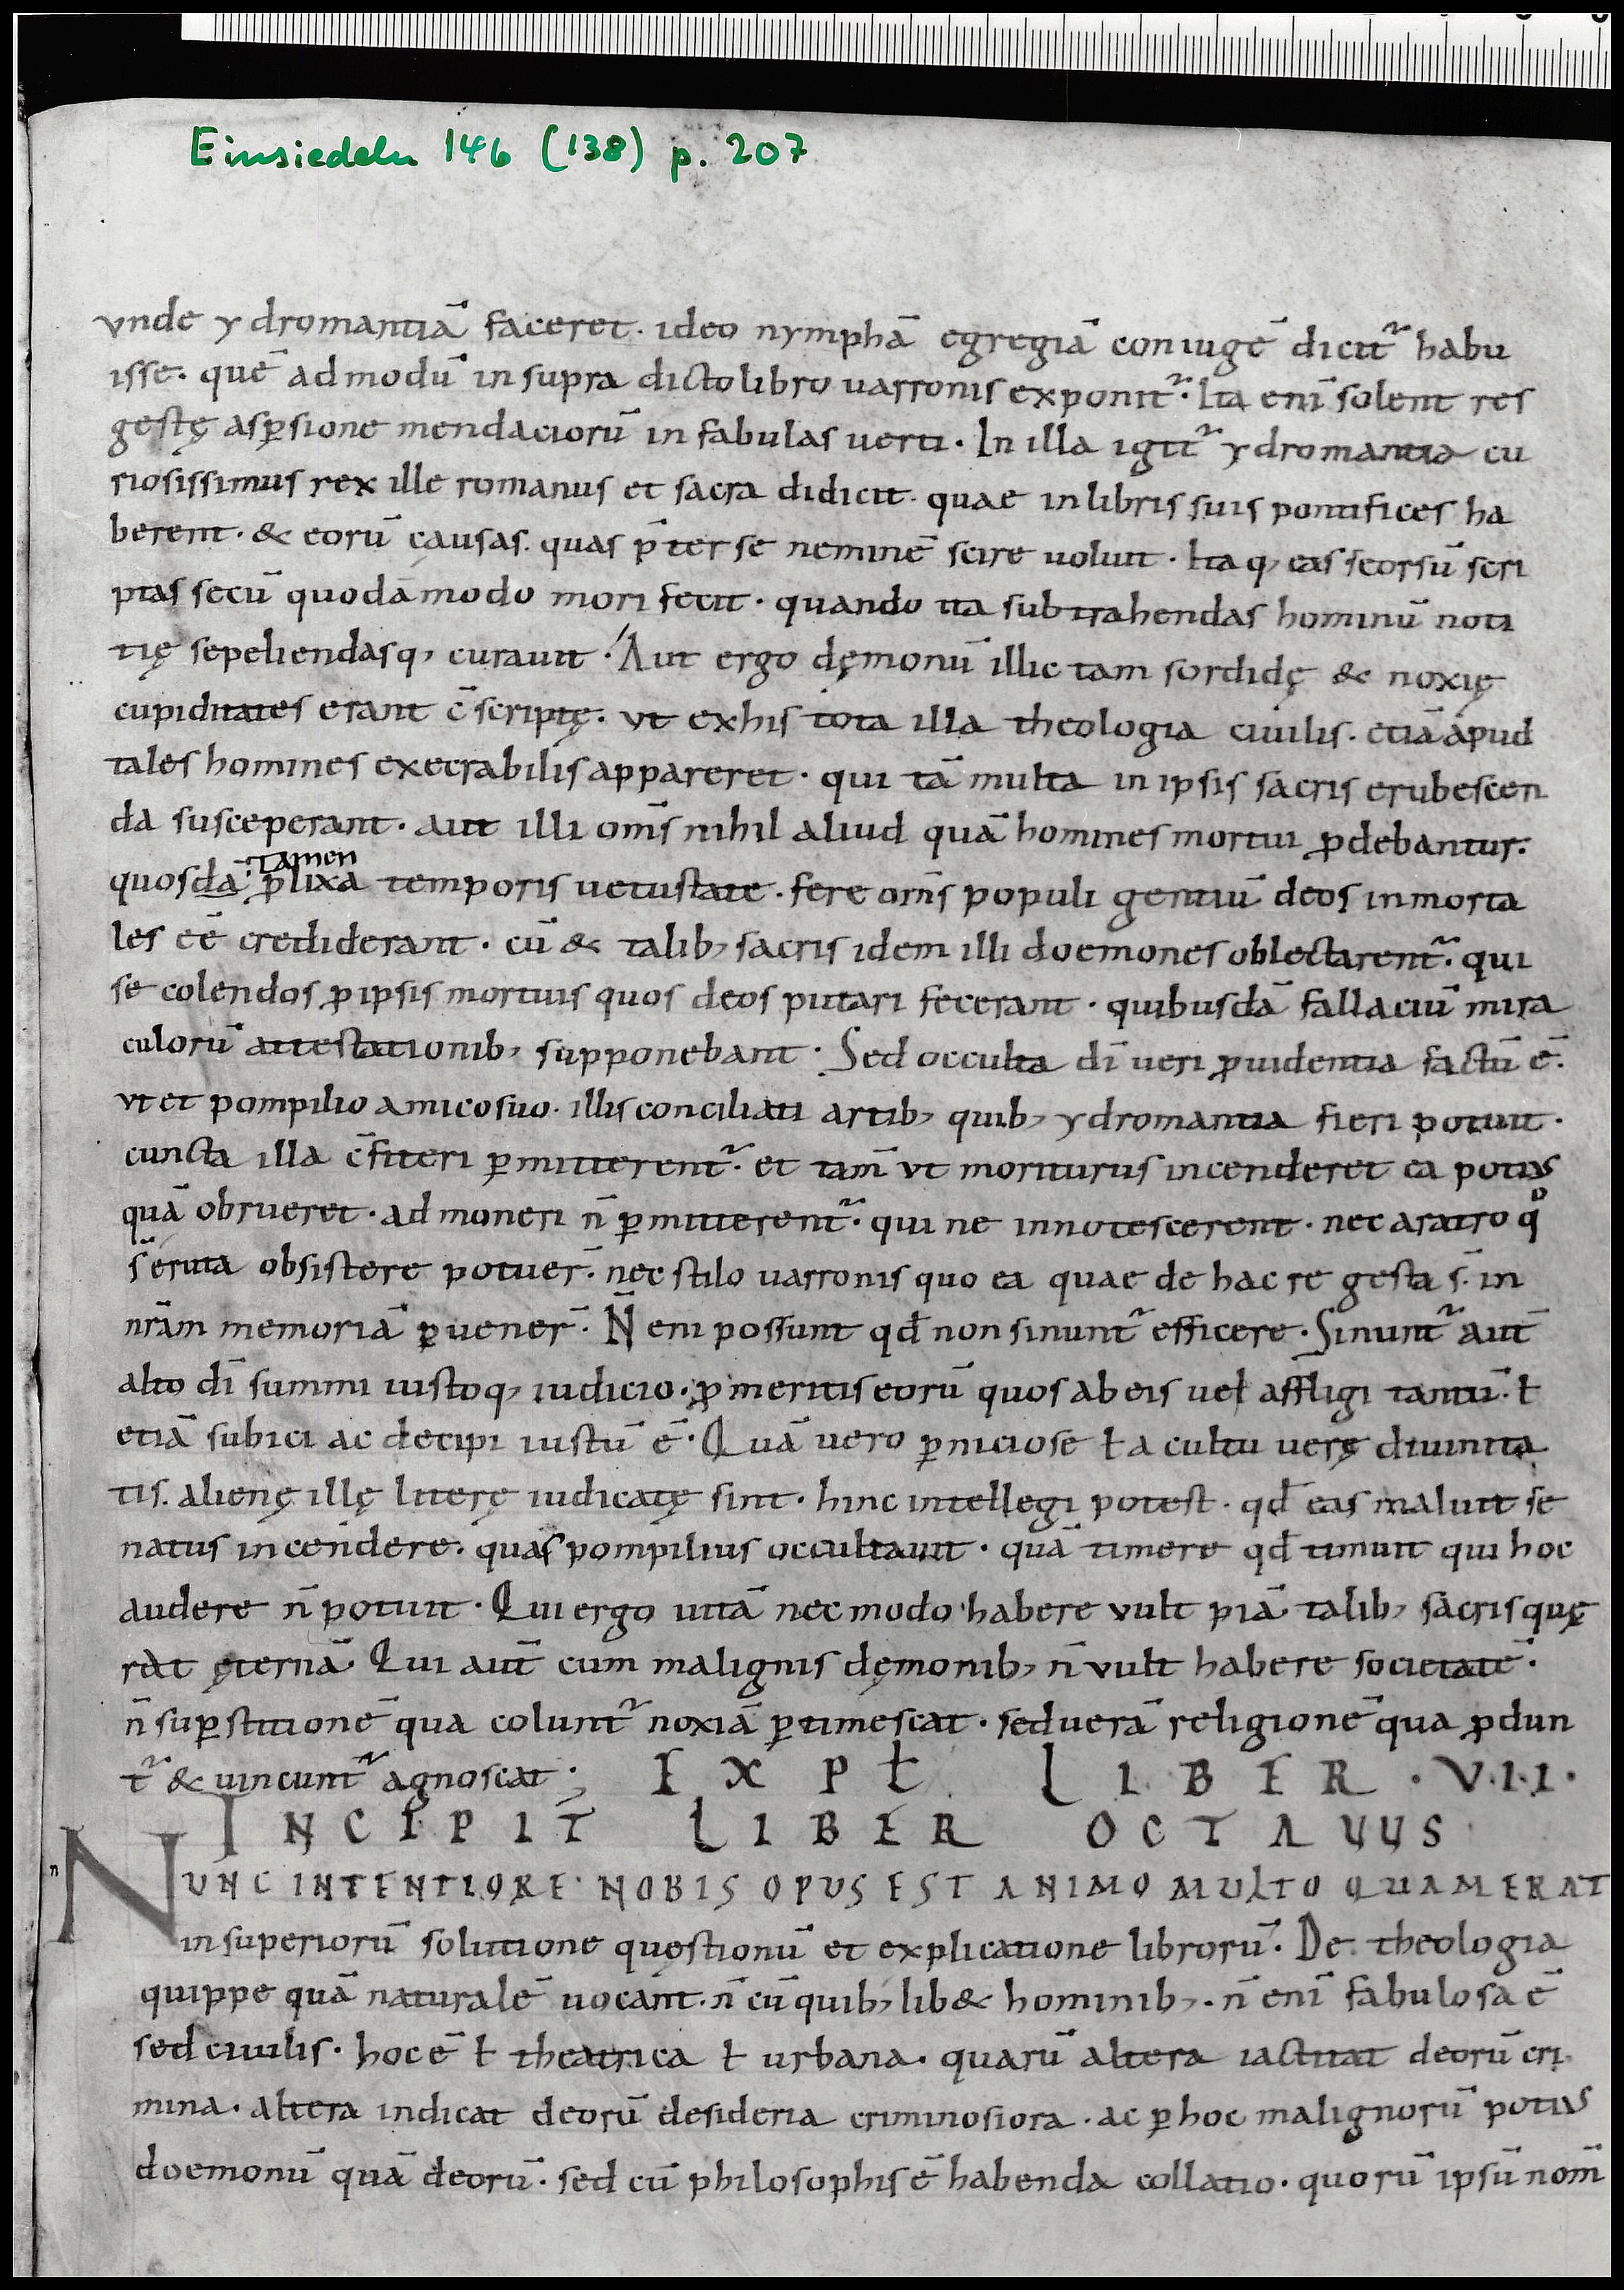 Einsiedeln 146 (138) p. 207
vnde ydromantiā faceret · ideo nymphā egregiā coniugē dicit᷑ habu
isse · quē ad modū in supra dicto libro uarronis exponit᷑ · Ita enī solent res
gestę asꝑsione mendaciorū in fabulas uerti · In illa igit᷑ ydromantia cu
riosissimus rex ille romanus et sacra didicit · quae in libris suis pontifices ha
berent · & eorū causas · quas p̄ter se neminē scire uoluit · Itaq, eas seorsū scri
ptas secū quodāmodo mori fecit · quando ita subtrahendas hominū noti
tię sepeliendasq, curauit · Aut ergo dęmonū illic tam sordidę & noxię
cupiditates erant c̄scriptę · vt ex his tota illa theologia ciuilis · etiā apud
tales homines execrabilis appareret · qui tā multa in ipsis sacris erubescen
da susceperant · aut illi om̄s nihil aliud quā homines mortui ꝓdebantur ·
tamen
quosdā ꝓlixa temporis uetustate · fere om̄s populi gentiū deos inmorta
les eē crediderant · cū & talib, sacris idem illi doemones oblectarent᷑ · qui
se colendos ꝓ ipsis mortuis quos deos putari fecerant · quibusdā fallaciū mira
culorū attestationib, supponebant · Sed occulta dī ueri ꝓuidentia factū ē ·
vt et pompilio amico suo · illis conciliati artib, quib, ydromantia fieri potuit ·
cuncta illa c̄fiteri ꝑmitterent᷑ · et tam̄ vt moriturus incenderet ea potius
quā obrueret · ad moneri n̄ ꝑmitterent᷑ · qui ne innotescerent · nec aratro qͦ
s̄ eruta obsistere potuer̄ · nec stilo uarronis quo ea quae de hac re gesta s̄ · in
nr̄am memoriā ꝑuener̄ · N̄ eni possunt qđ non sinunt᷑ efficere · Sinunt᷑ aut̄
alto dī summi iustoq, iudicio · ꝓ meritis eorū quos ab eis uel affligi tantū · ł
etiā subici ac decipi iustū ē · Quā uero ꝑniciose ł a cultu uerę diuinita
tis · alienę illę literę iudicatę sint · hinc intellegi potest · qđ eas maluit se
natus incendere · quas pompilius occultauit · quā timere qđ timuit qui hoc
audere n̄ potuit · Qui ergo uitā nec modo habere vult piā · talib, sacris quę
rat ęternā · Qui aut̄ cum malignis dęmonib, n̄ vult habere societatē ·
n̄ suꝑstitionē qua colunt᷑ noxiā ꝑtimescat · sed uerā religionē qua ꝓdun
t᷑ & uincunt᷑ agnoscat ; EXPŁ LIBER · V.I.I ·
INCIPIT LIBER OCTAUUS
n NUNC INTENTIORE NOBIS OPUS EST ANIMO MULTO QUAM ERAT
in superiorū solutione quęstionū et explicatione librorū · De theologia
quippe quā naturalē uocant · n̄ cū quib, lib& hominib, · n̄ enī fabulosa ē
sed ciuilis · hoc ē ł theatrica ł urbana · quarū altera iactitat deorū cri
mina · altera indicat deorū desideria criminosiora · ac ꝑ hoc malignorū potius
doemonū quā deorū · sed cū philosophis ē habenda collatio · quorū ipsū nom̄